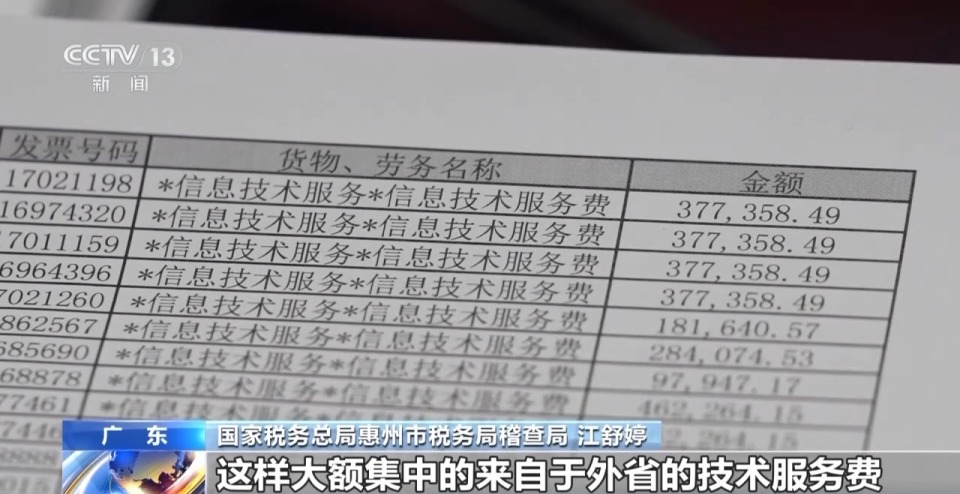 CCTV 13
新闻
发票号码 货物、劳务名称 金额
17021198 *信息技术服务*信息技术服务费 377,358.49
16974320 *信息技术服务*信息技术服务费 377,358.49
17011159 *信息技术服务*信息技术服务费 377,358.49
6964396 *信息技术服务*信息技术服务费 377,358.49
7021260 *信息技术服务*信息技术服务费 181,640.57
862567 *信息技术服务*信息技术服务费 284,074.53
685690 *信息技术服务*信息技术服务费 97,947.17
68878 *信息技术服务*信息技术服务费 462,264.15
77461 *信息技术服务
广东 国家税务总局惠州市税务局稽查局 江舒婷
这样大额集中的来自于外省的技术服务费